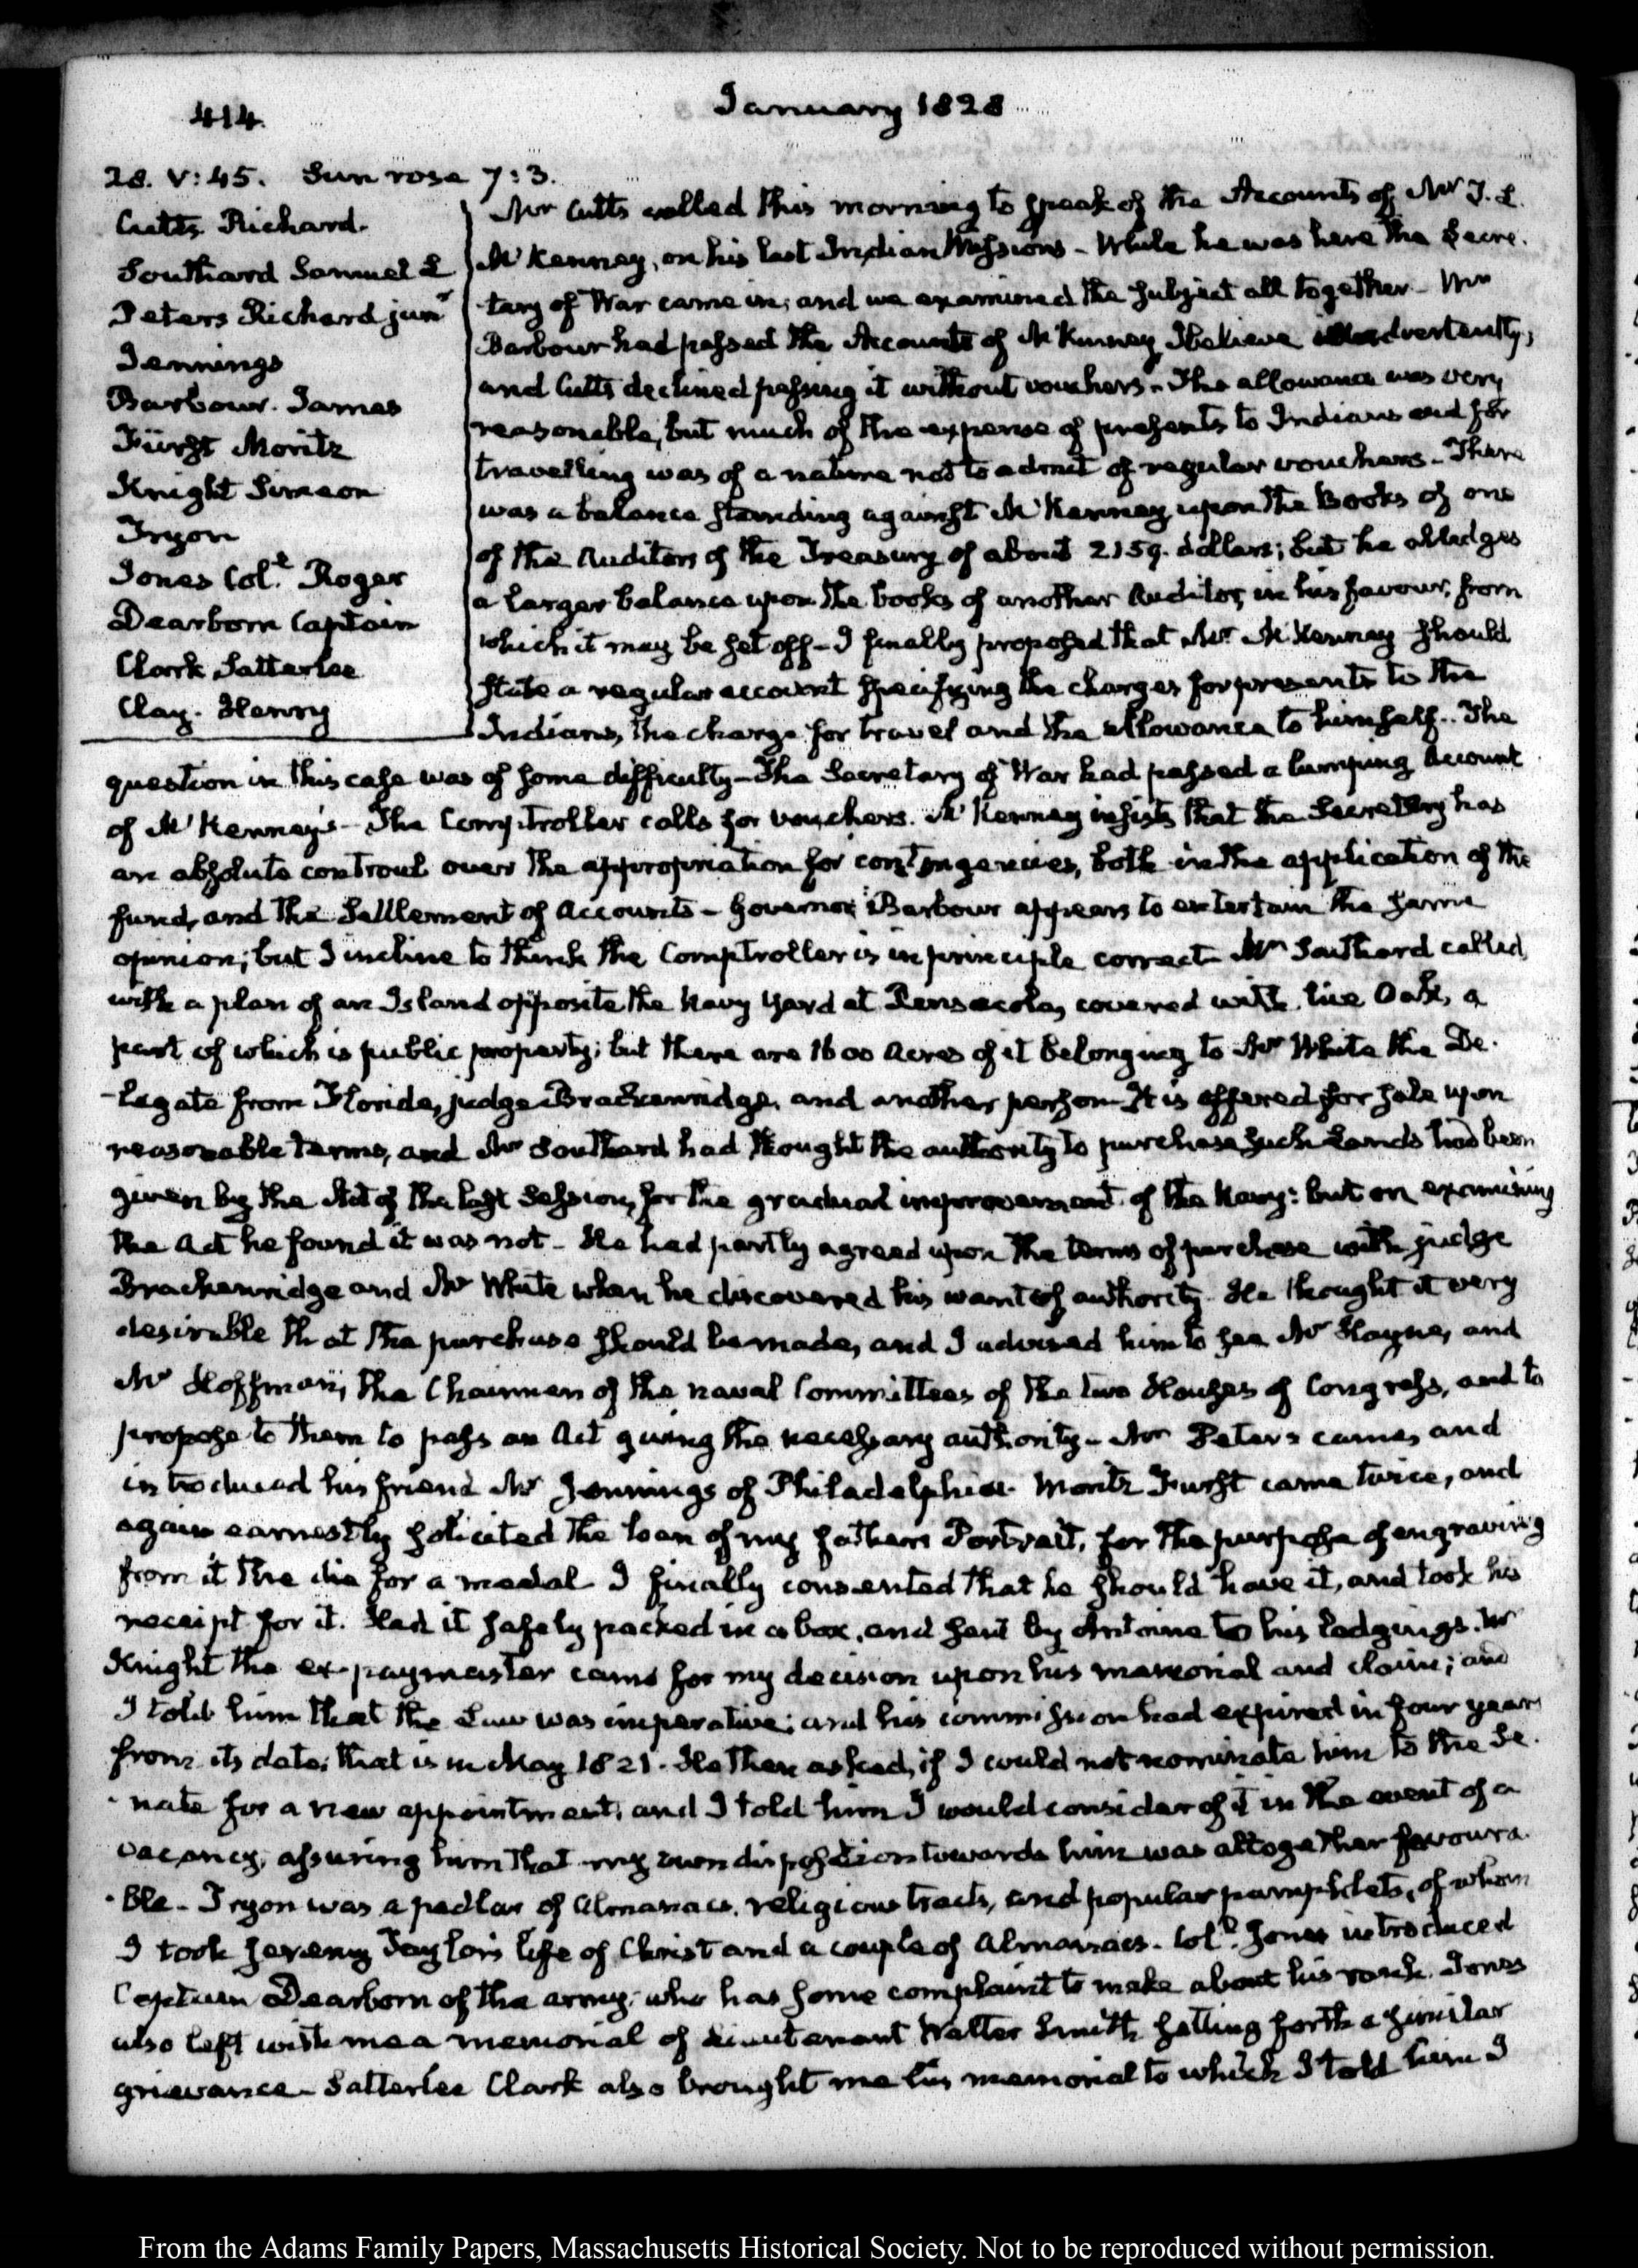 414.
January 1828
28. V:45. Sun rose 7:3.
Cutts Richard.
Southard Samuel L
Peters Richard junr
Jennings
Barbour. James
Fürst Moritz
Knight Simeon
Tryon
Jones Coll. Roger
Dearborn Captain
Clark Satterlee
Clay. Henry
Mr Cutts called this morning to speak of the Accounts of Mr T. L.
McKenney, on his last Indian Missions – While he was here the Secre-
tary of War came in; and we examined the subject all together – Mr
Barbour had passed the Accounts of McKenney, I believe inadvertently;
and Cutts declined passing it without vouchers – The allowance was very
reasonable, but much of the expense of presents to Indians and for
travelling was of a nature not to admit of regular vouchers – There
was a balance standing against McKenney upon the Books of one
of the Auditors of the Treasury of about 2159. dollars; but he alledges
a larger balance upon the books of another Auditor, in his favour, from
which it may be set off – I finally proposed that Mr McKenney should
state a regular account specifying the charges for presents to the
Indians, the charge for travel and the allowance to himself.. The
question in this case was of some difficulty – The Secretary of War had passed a lumping Account
of McKenney's – The Comptroller calls for vouchers. McKenney insists that the Secretary has
an absolute controul over the appropriation for contingencies, both in the application of the
fund, and the Settlement of Accounts – Governor Barbour appears to entertain the same
opinion; but I incline to think the Comptroller is in principle correct – Mr Southard called,
with a plan of an Island opposite the Navy Yard at Pensacola, covered with live Oak, a
part of which is public property; but there are 1600 Acres of it belonging to Mr White the De-
-legate from Florida, judge Brackenridge, and another person – It is offered for sale upon
reasonable terms, and Mr Southard had thought the authority to purchase such Lands had been
given by the Act of the last Session, for the gradual improvement of the Navy: but on examining
the Act he found it was not – He had partly agreed upon the terms of purchase with judge
Brackenridge and Mr White when he discovered his want of authority – He thought it very
desirable that the purchase should be made, and I advised him to see Mr Hayne, and
Mr Hoffman, the Chairmen of the naval Committees of the two Houses of Congress, and to
propose to them to pass an Act giving the necessary authority – Mr Peters came, and
introduced his friend Mr Jennings of Philadelphia. Moritz Furst came twice, and
again earnestly solicited the loan of my fathers Portrait, for the purpose of engraving
from it the die for a medal – I finally consented that he should have it, and took his
receipt for it. Had it safely packed in a box, and sent by Antoine to his lodgings. Mr
Knight the ex-paymaster came for my decision upon his memorial and claim; and
I told him that the Law was imperative; and his commission had expired in four years
from its date; that is in May 1821. He then asked, if I could not nominate him to the Se-
-nate for a new appointment, and I told him I would consider of it in the event of a
vacancy, assuring him that my own disposition towards him was altogether favoura-
-ble – Tryon was a pedlar of Almanacs, religious tracts, and popular pamphlets, of whom
I took Jeremy Taylor's life of Christ and a couple of Almanacs – Coll. Jones introduced
Captain Dearborn of the army, who has some complaint to make about his rank. Jones
also left with me a memorial of Lieutenant Walter Smith setting forth a similar
grievance – Satterlee Clark also brought me his memorial to which I told him I
From the Adams Family Papers, Massachusetts Historical Society. Not to be reproduced without permission.